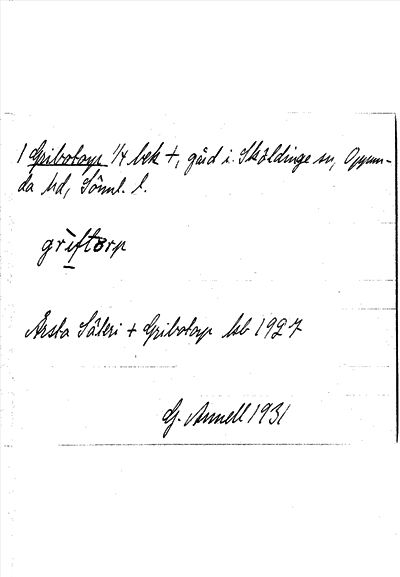 1 Gribotorp 1/4 bek +, gård i Sköldinge sn, Oppun-
da hd, Söml. l.
griftorp
Årsta Säteri + Gribotorp lsb 1927
G. Annell 1931